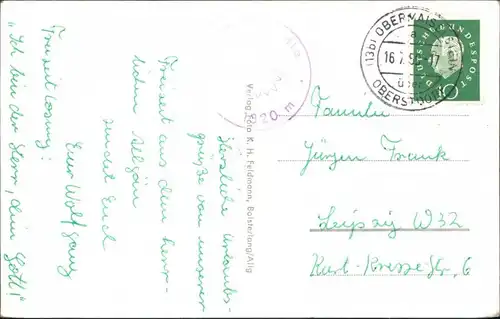 Herzliche Urlaubs-
grüße von unserer
Freizeit aus dem herr-
lichen Allgäu
sendet Euch
Euer Wolfgang
Freizeitlosung:
"Ich bin der Herr, dein Gott!"
Verlag Foto K. H. Feldmann, Bolsterlang/Allg
820 m
(13b) OBERMAISELSTEIN
a
16.7.
über
OBERSTDORF
DEUTSCHE BUNDESPOST
10
Familie
Jürgen Frank
Leipzig W32
Kurt-Kresse-Str. 6